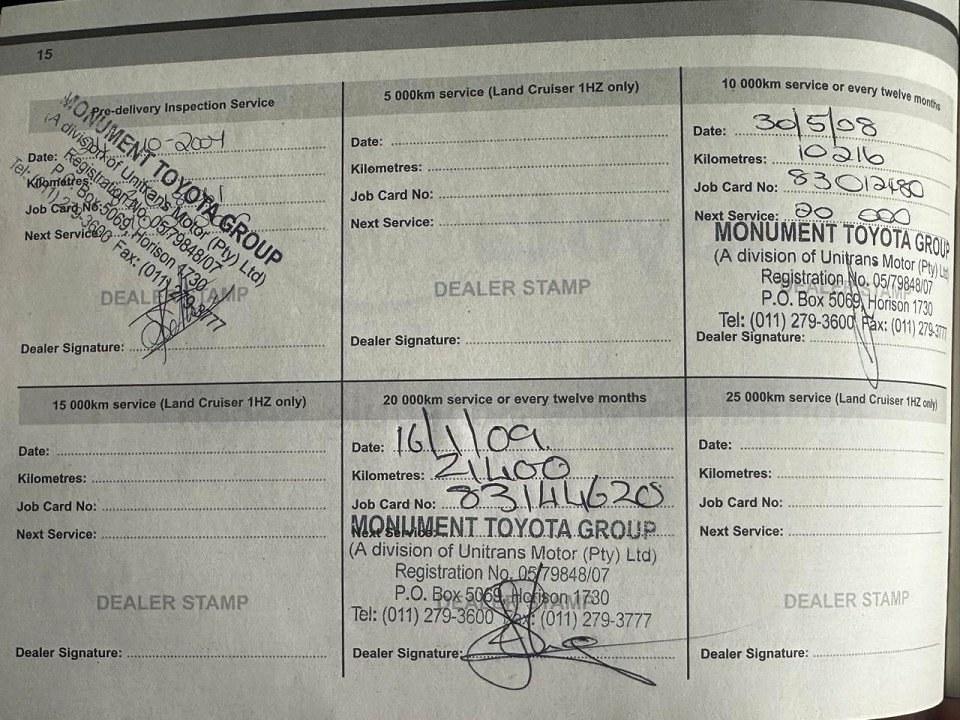 15
Pre-delivery Inspection Service
Date: 10-2007
Kilometres:
Job Card No:
Next Service:
MONUMENT TOYOTA GROUP
(A division of Unitrans Motor (Pty) Ltd)
Registration No. 05/79848/07
P.O. Box 5069, Horison 1730
Tel: (011) 279-3600 Fax: (011) 279-3777
DEALER STAMP
Dealer Signature:
5 000km service (Land Cruiser 1HZ only)
Date:
Kilometres:
Job Card No:
Next Service:
DEALER STAMP
Dealer Signature:
10 000km service or every twelve months
Date: 30/5/08
Kilometres: 10216
Job Card No: 83012480
Next Service: 20 000
MONUMENT TOYOTA GROUP
(A division of Unitrans Motor (Pty) Ltd)
Registration No. 05/79848/07
P.O. Box 5069, Horison 1730
Tel: (011) 279-3600 Fax: (011) 279-3777
DEALER STAMP
Dealer Signature:
15 000km service (Land Cruiser 1HZ only)
Date:
Kilometres:
Job Card No:
Next Service:
DEALER STAMP
Dealer Signature:
20 000km service or every twelve months
Date: 16/1/09
Kilometres: 21400
Job Card No: 83144620
Next Service:
MONUMENT TOYOTA GROUP
(A division of Unitrans Motor (Pty) Ltd)
Registration No. 05/79848/07
P.O. Box 5069, Horison 1730
DEALER STAMP
Tel: (011) 279-3600 Fax: (011) 279-3777
Dealer Signature:
25 000km service (Land Cruiser 1HZ only)
Date:
Kilometres:
Job Card No:
Next Service:
DEALER STAMP
Dealer Signature: